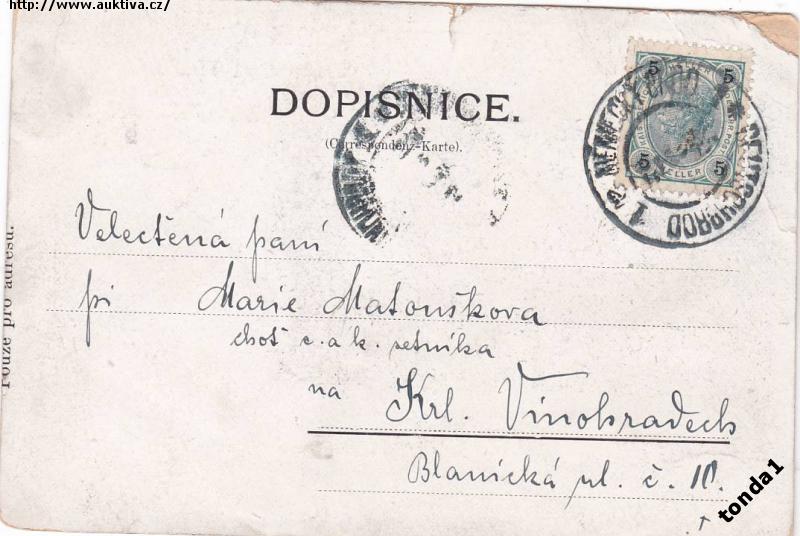 http://www.auktiva.cz/
DOPISNICE.
(Correspondenz-Karte).
5 5
5 5
HELLER
NĚMECKÝ BROD
DEUTSCHBROD
1
Velectěná paní
pí Marie Matouškova
choť c. a k. setníka
na Král. Vinohradech
Blanická ul. č. 10.
Pouze pro adresu.
tonda1